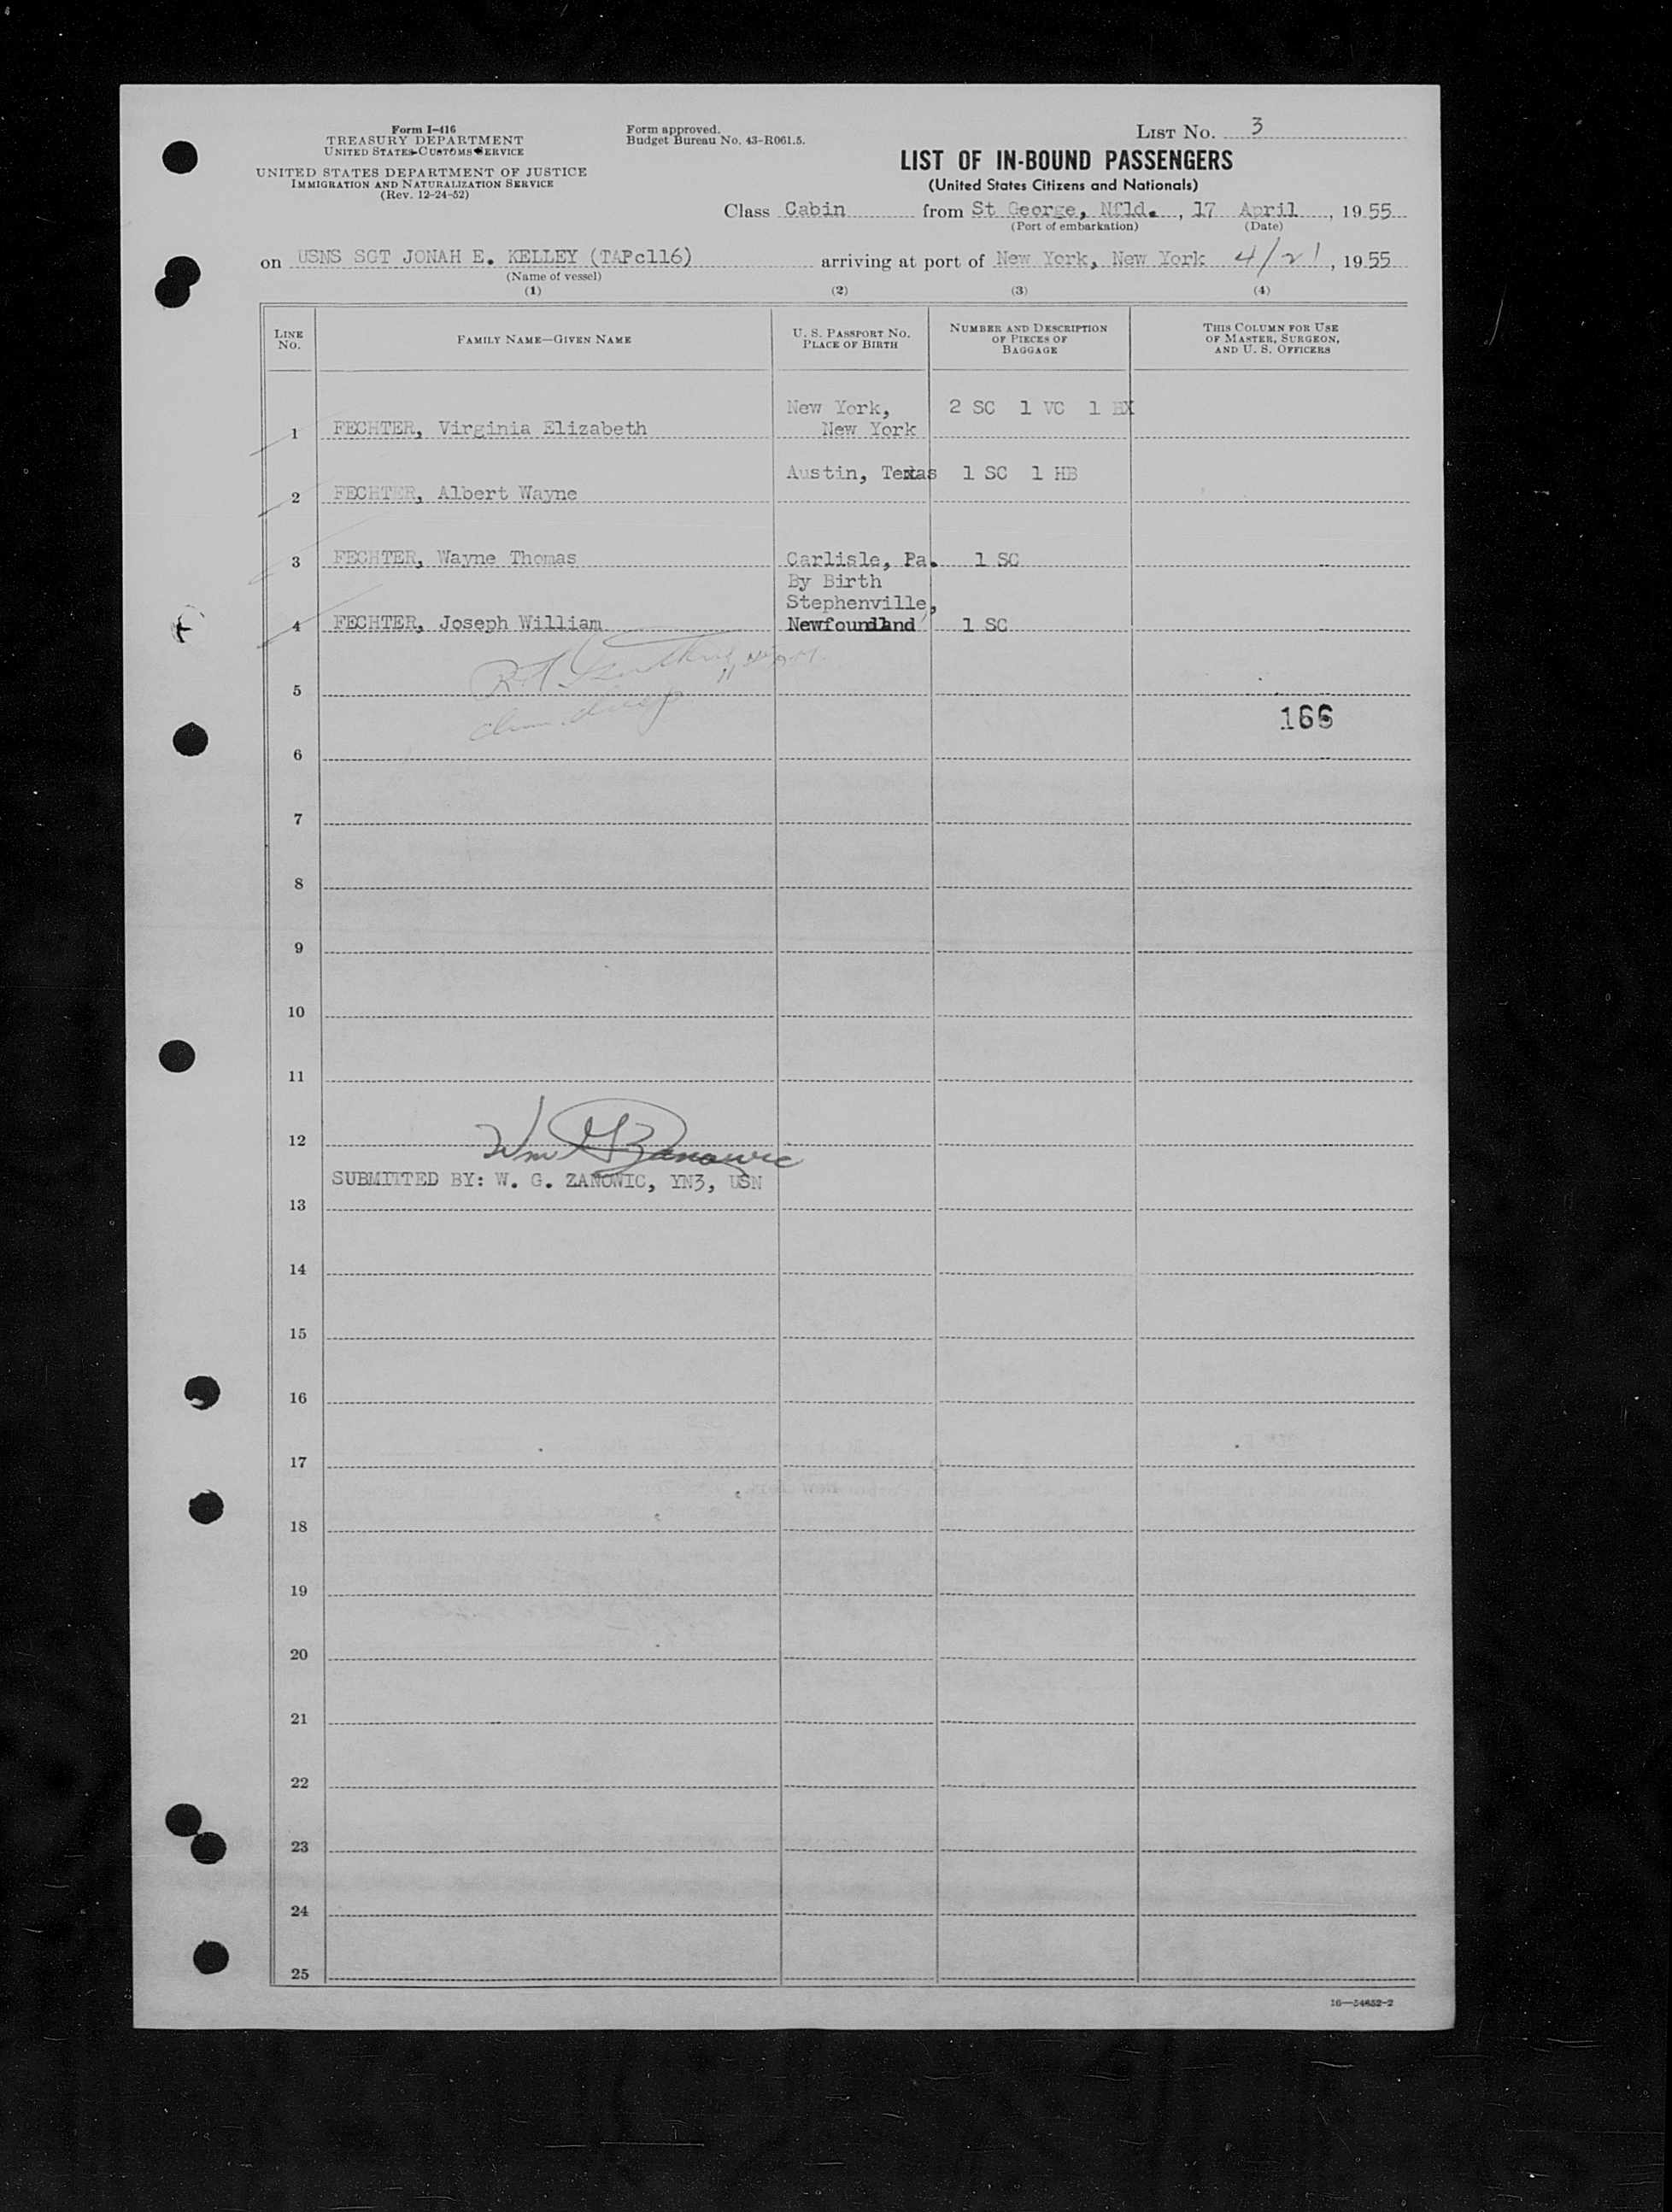 Form I-416
TREASURY DEPARTMENT
UNITED STATES CUSTOMS SERVICE
UNITED STATES DEPARTMENT OF JUSTICE
IMMIGRATION AND NATURALIZATION SERVICE
(Rev. 12-24-52)
Form approved.
Budget Bureau No. 43-R061.5.
LIST NO. 3
LIST OF IN-BOUND PASSENGERS
(United States Citizens and Nationals)
Class Cabin from St George, Nfld., 17 April, 1955
(Port of embarkation) (Date)
on USNS SGT JONAH E. KELLEY (TAPc116) arriving at port of New York, New York 4/21, 1955
(Name of vessel)
(1) (2) (3) (4)
LINE NO. FAMILY NAME—GIVEN NAME U. S. PASSPORT NO. PLACE OF BIRTH NUMBER AND DESCRIPTION OF PIECES OF BAGGAGE THIS COLUMN FOR USE OF MASTER, SURGEON, AND U. S. OFFICERS
New York, 2 SC 1 VC 1
1 FECHTER, Virginia Elizabeth New York
Austin, Texas 1 SC 1 HB
2 FECHTER, Albert Wayne
3 FECHTER, Wayne Thomas Carlisle, Pa. 1 SC
By Birth
Stephenville,
4 FECHTER, Joseph William Newfoundland 1 SC
5
166
6
7
8
9
10
11
12
Wm G Zanowic
SUBMITTED BY: W. G. ZANOWIC, YN3, USN
13
14
15
16
17
18
19
20
21
22
23
24
25
16—54652-2